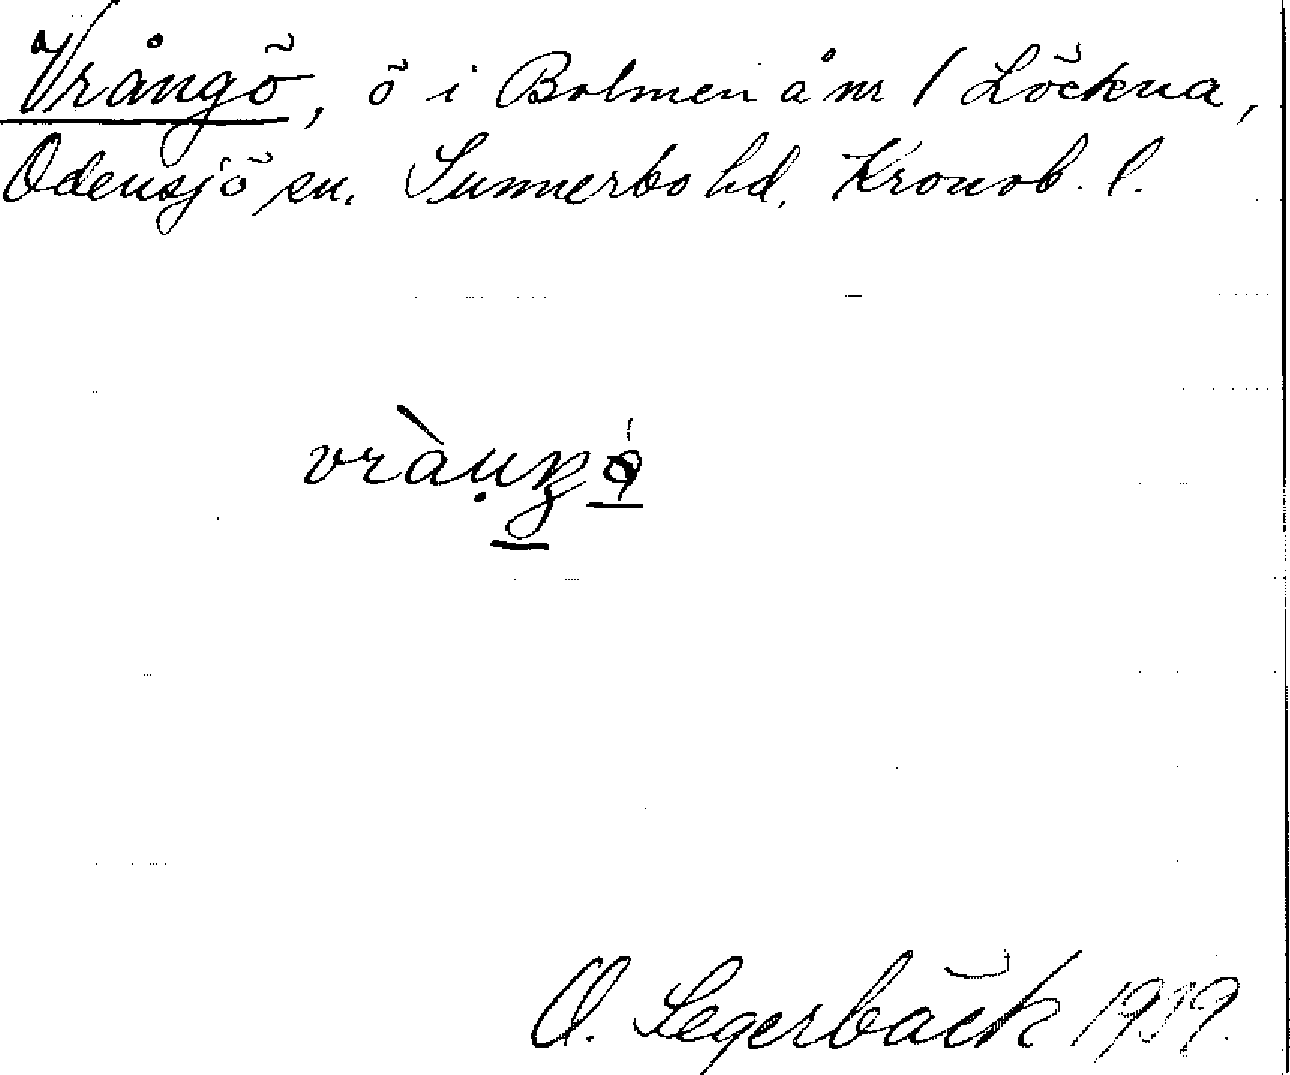 Vrångö, ö i Bolmen å nr 1 Löckna,
Odensjö sn. Sunnerbo hd. Kronob. l.
O. Segerbäck 1939.